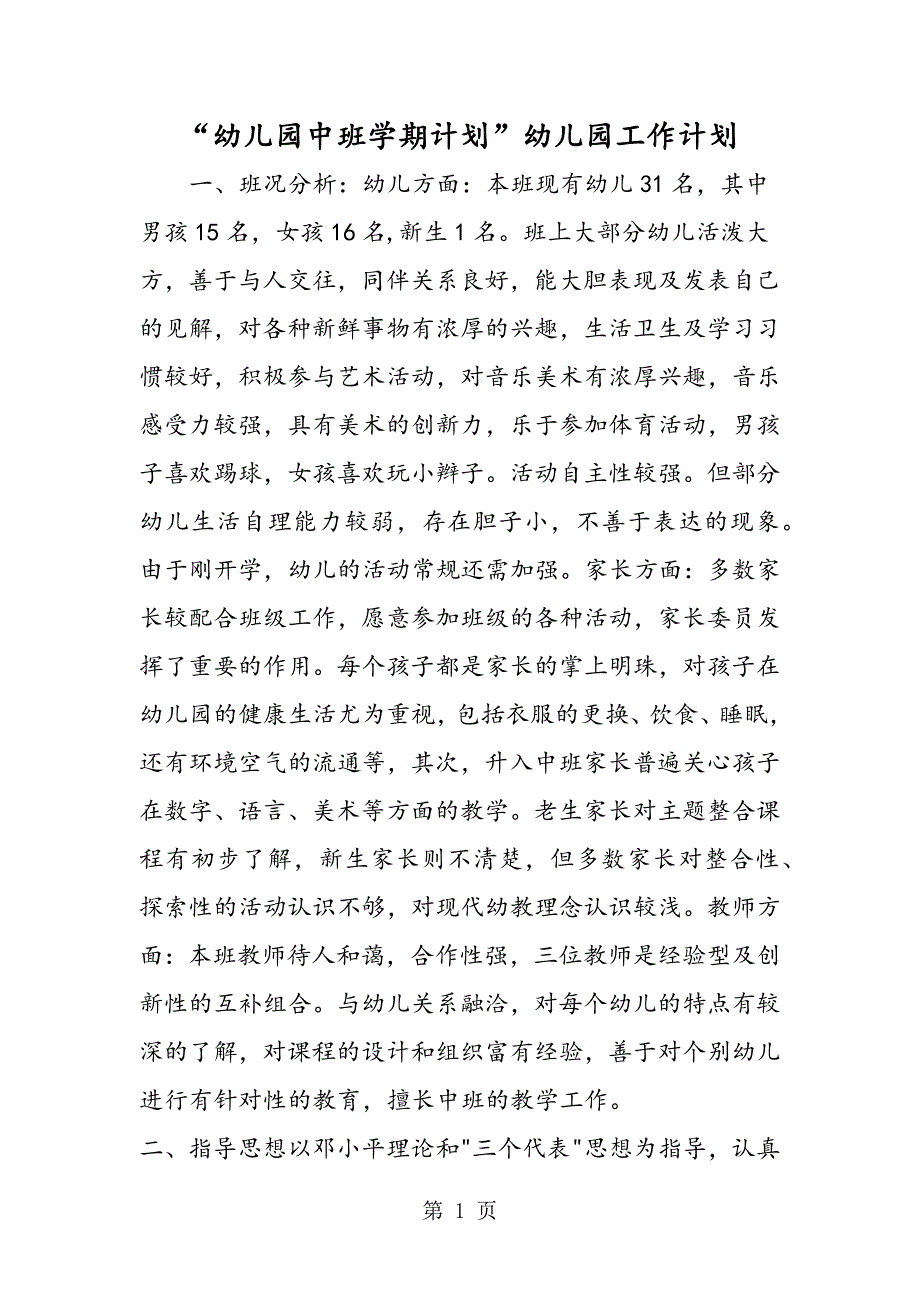 “幼儿园中班学期计划”幼儿园工作计划
一、班况分析：幼儿方面：本班现有幼儿31名，其中
男孩15名，女孩16名,新生1名。班上大部分幼儿活泼大
方，善于与人交往，同伴关系良好，能大胆表现及发表自己
的见解，对各种新鲜事物有浓厚的兴趣，生活卫生及学习习
惯较好，积极参与艺术活动，对音乐美术有浓厚兴趣，音乐
感受力较强，具有美术的创新力，乐于参加体育活动，男孩
子喜欢踢球，女孩喜欢玩小辫子。活动自主性较强。但部分
幼儿生活自理能力较弱，存在胆子小，不善于表达的现象。
由于刚开学，幼儿的活动常规还需加强。家长方面：多数家
长较配合班级工作，愿意参加班级的各种活动，家长委员发
挥了重要的作用。每个孩子都是家长的掌上明珠，对孩子在
幼儿园的健康生活尤为重视，包括衣服的更换、饮食、睡眠，
还有环境空气的流通等，其次，升入中班家长普遍关心孩子
在数字、语言、美术等方面的教学。老生家长对主题整合课
程有初步了解，新生家长则不清楚，但多数家长对整合性、
探索性的活动认识不够，对现代幼教理念认识较浅。教师方
面：本班教师待人和蔼，合作性强，三位教师是经验型及创
新性的互补组合。与幼儿关系融洽，对每个幼儿的特点有较
深的了解，对课程的设计和组织富有经验，善于对个别幼儿
进行有针对性的教育，擅长中班的教学工作。
二、指导思想以邓小平理论和"三个代表"思想为指导，认真
第 1 页